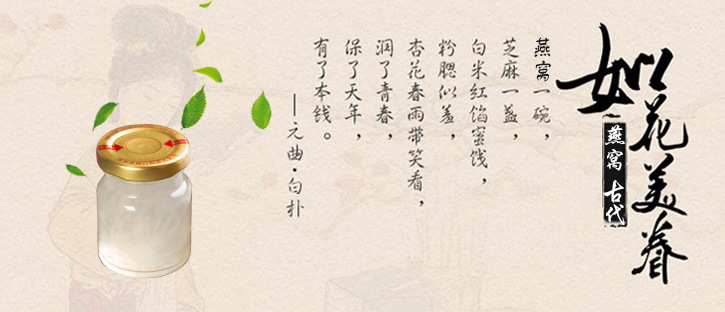 如花美眷
燕窝 古代
燕窝一碗，
芝麻一盏，
白米红馅蜜饯，
粉腮似羞，
杏花春雨带笑看，
润了青春，
保了天年，
有了本钱。
—元曲·白朴